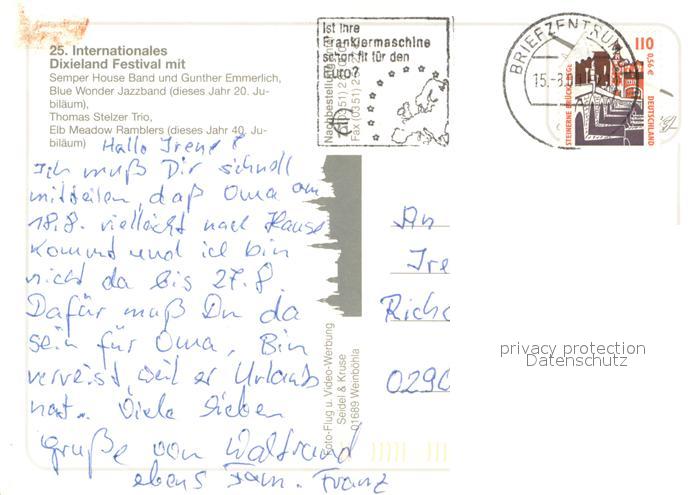 25. Internationales
Dixieland Festival mit
Semper House Band und Gunther Emmerlich,
Blue Wonder Jazzband (dieses Jahr 20. Ju-
biläum),
Thomas Stelzer Trio,
Elb Meadow Ramblers (dieses Jahr 40. Ju-
biläum)
Hallo Irene!
Ich muß Dir schnell
mitteilen, daß Oma am
18.8. vielleicht nach Hause
kommt und ich bin
nicht da bis 27.8.
Dafür muß Du da
sein für Oma. Bin
verreist, weil er Urlaub
hat. Viele lieben
grüße von Waltraud
ebens Fam. Franz
Ist Ihre
Frankiermaschine
schon fit für den
Euro?
Nachbestellung
Fax (0351) 2
Foto-Flug u. Video-Werbung
Seidel & Kruse
01689 Weinböhla
BRIEFZENTRUM
15.-8.0
110
0,56 €
STEINERNE BRÜCKE
DEUTSCHLAND
An
Ire
Richa
0290
privacy protection
Datenschutz